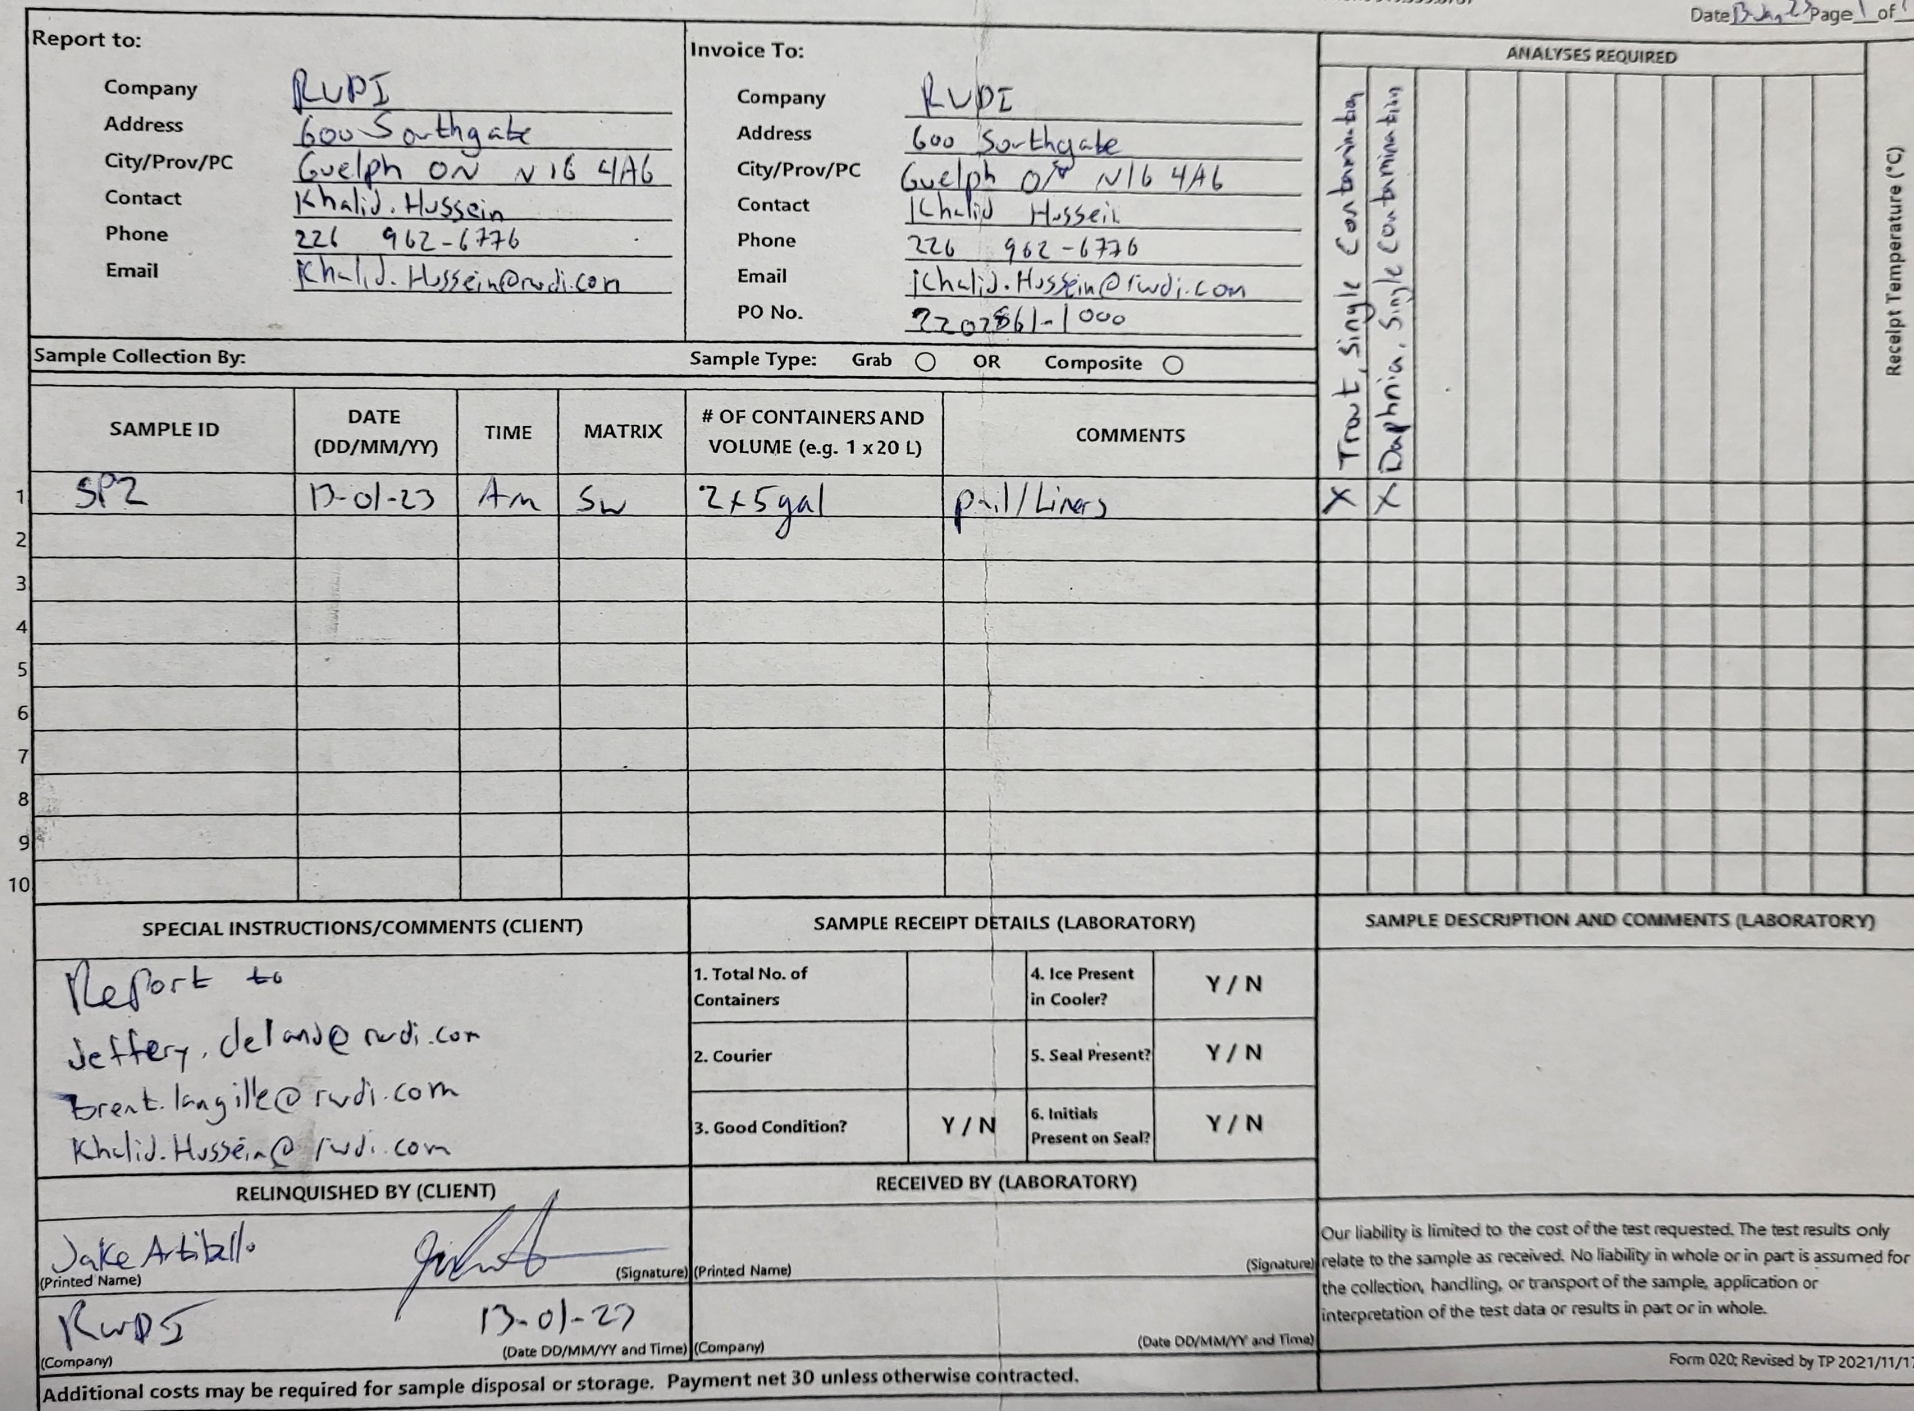 Date 13 Jan 23 Page 1 of 1
Report to:
Company RWDI
Address 600 Southgate
City/Prov/PC Guelph ON N1G 4A6
Contact Khalid.Hussein
Phone 226 962-6776
Email Khalid.Hussein@rwdi.com
Invoice To:
Company RWDI
Address 600 Southgate
City/Prov/PC Guelph ON N1G 4A6
Contact Khalid Hussein
Phone 226 962-6776
Email Khalid.Hussein@rwdi.com
PO No. 2202861-1000
ANALYSES REQUIRED
Trout, Single Contamination
Daphnia, Single Contamination
Receipt Temperature (°C)
Sample Collection By:
Sample Type: Grab OR Composite
SAMPLE ID
DATE
(DD/MM/YY)
TIME
MATRIX
# OF CONTAINERS AND
VOLUME (e.g. 1 x 20 L)
COMMENTS
1 SP2 13-01-23 Am SW 2x5gal pail/Liners X X
2
3
4
5
6
7
8
9
10
SPECIAL INSTRUCTIONS/COMMENTS (CLIENT)
Report to
Jeffery.deland@rwdi.com
brent.langille@rwdi.com
Khalid.Hussein@rwdi.com
SAMPLE RECEIPT DETAILS (LABORATORY)
1. Total No. of
Containers
4. Ice Present
in Cooler?
Y / N
2. Courier
5. Seal Present?
Y / N
3. Good Condition?
Y / N
6. Initials
Present on Seal?
Y / N
SAMPLE DESCRIPTION AND COMMENTS (LABORATORY)
RELINQUISHED BY (CLIENT)
Jake Artibello
(Printed Name)
(Signature)
RWDI
13-01-23
(Company)
(Date DD/MM/YY and Time)
RECEIVED BY (LABORATORY)
(Printed Name)
(Signature)
(Company)
(Date DD/MM/YY and Time)
Our liability is limited to the cost of the test requested. The test results only
relate to the sample as received. No liability in whole or in part is assumed for
the collection, handling, or transport of the sample, application or
interpretation of the test data or results in part or in whole.
Form 020; Revised by TP 2021/11/17
Additional costs may be required for sample disposal or storage. Payment net 30 unless otherwise contracted.